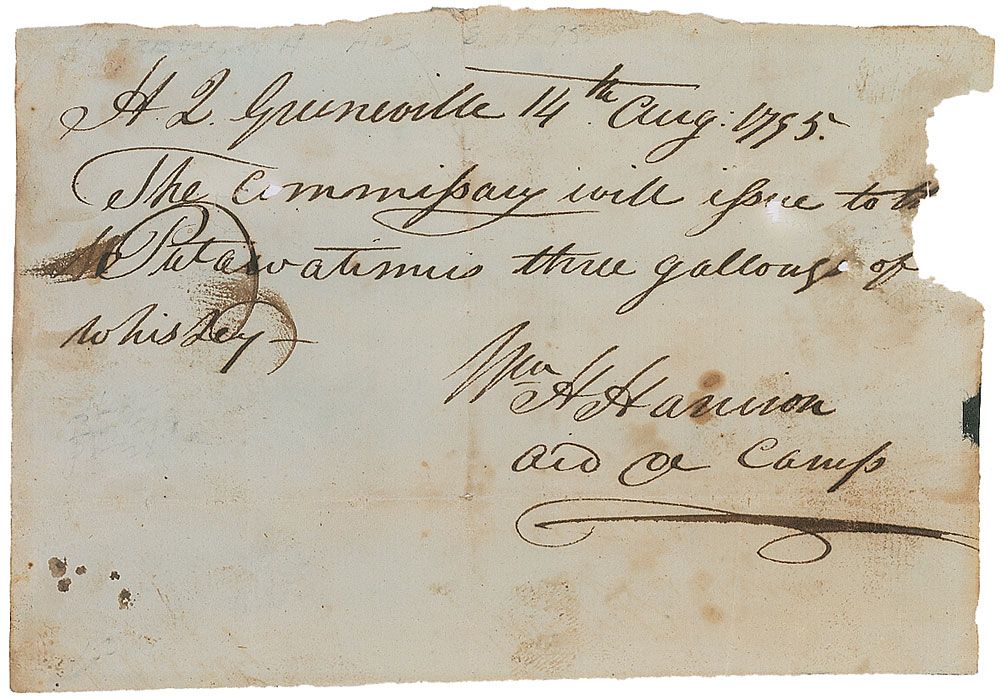 H Q. Greeneville 14th Aug: 1795.
The Commissary will issue to
Putawatimies three gallons of
Whiskey —
Wm H Harrison
Aid de Camp